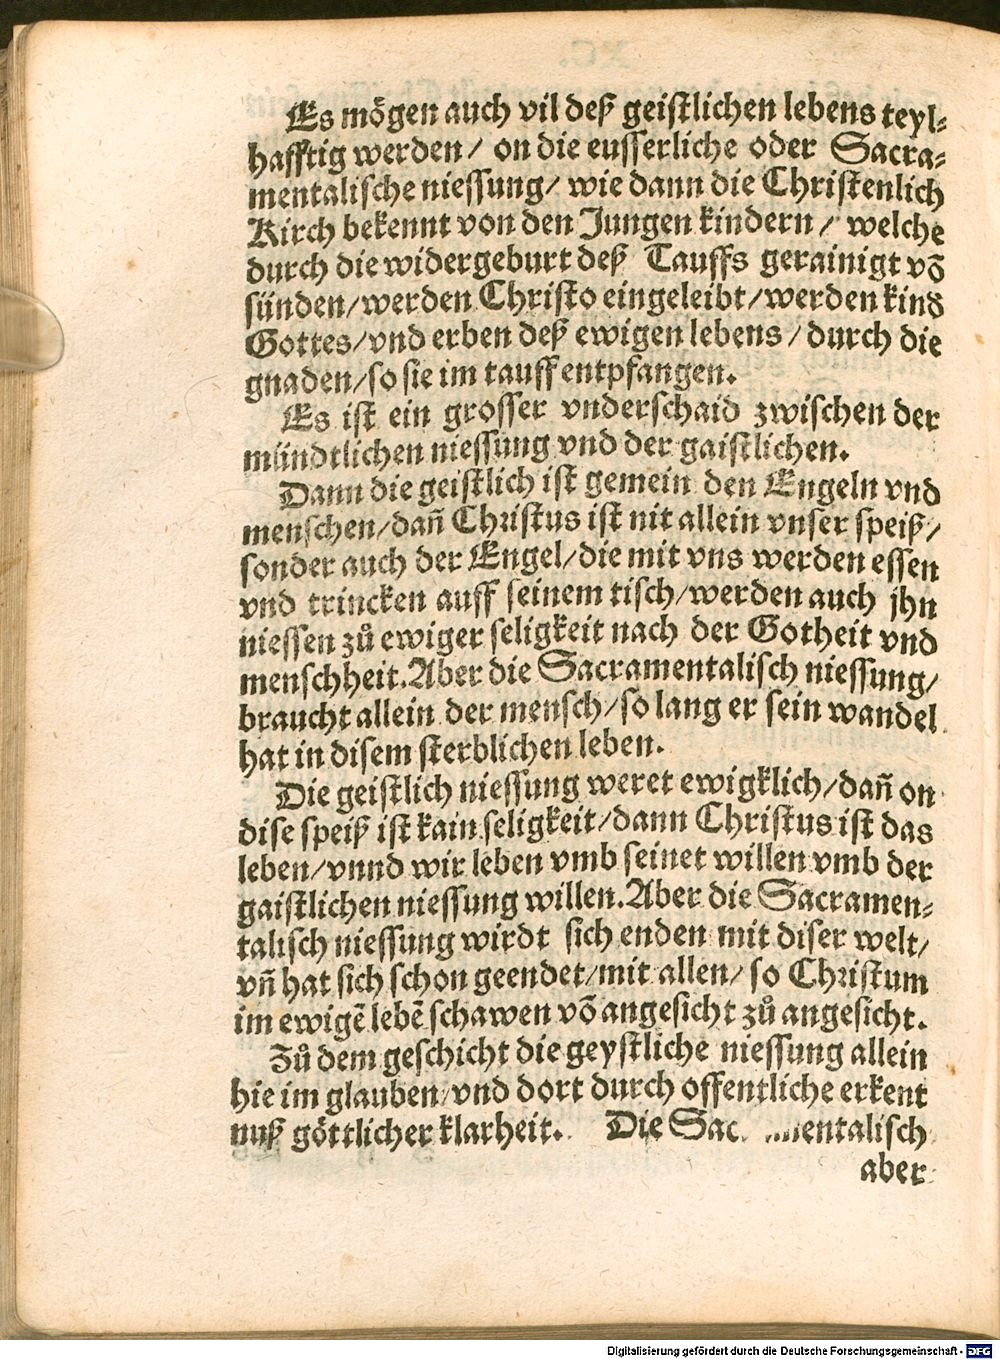 Es mögen auch vil deß geistlichen lebens teyl⸗
hafftig werden/ on die eusserliche oder Sacra⸗
mentalische niessung/ wie dann die Christenlich
Kirch bekennt von den Jungen kindern/ welche
durch die widergeburt deß Tauffs gerainigt võ
sünden/werden Christo eingeleibt/werden kind
Gottes/vnd erben deß ewigen lebens/durch die
gnaden/so sie im tauff entpfangen.
Es ist ein grosser vnderschaid zwischen der
mündtlichen niessung vnd der gaistlichen.
Dann die geistlich ist gemein den Engeln vnd
menschen/dañ Christus ist nit allein vnser speiß/
sonder auch der Engel/die mit vns werden essen
vnd trincken auff seinem tisch/werden auch jhn
niessen zů ewiger seligkeit nach der Gotheit vnd
menschheit. Aber die Sacramentalisch niessung/
braucht allein der mensch/so lang er sein wandel
hat in disem sterblichen leben.
Die geistlich niessung weret ewigklich/dañ on
dise speiß ist kain seligkeit/dann Christus ist das
leben/vnnd wir leben vmb seinet willen vmb der
gaistlichen niessung willen. Aber die Sacramen⸗
talisch niessung wirdt sich enden mit diser welt/
vñ hat sich schon geendet/mit allen/ so Christum
im ewigẽ lebẽ schawen võ angesicht zů angesicht.
Zů dem geschicht die geystliche niessung allein
hie im glauben/vnd dort durch offentliche erkent
nuß göttlicher klarheit. Die Sac mentalisch
aber
Digitalisierung gefördert durch die Deutsche Forschungsgemeinschaft - DFG